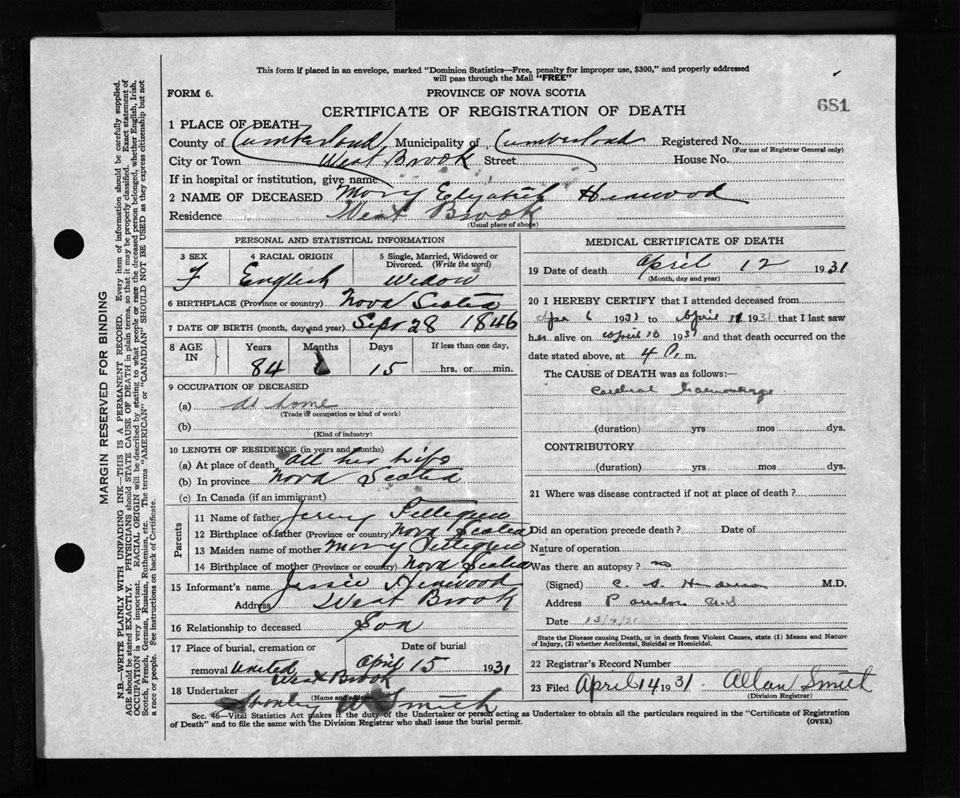 This form if placed in an envelope, marked "Dominion Statistics—Free, penalty for improper use, $300," and properly addressed
will pass through the Mail "FREE"
FORM 6.
PROVINCE OF NOVA SCOTIA
681
CERTIFICATE OF REGISTRATION OF DEATH
1 PLACE OF DEATH—
County of Cumberland, Municipality of Cumberland Registered No.
(For use of Registrar General only)
City or Town West Brook Street House No.
If in hospital or institution, give name
2 NAME OF DECEASED Mary Elizabeth Henwood
Residence West Brook
(Usual place of abode)
PERSONAL AND STATISTICAL INFORMATION
3 SEX 4 RACIAL ORIGIN 5 Single, Married, Widowed or
Divorced. (Write the word)
F English Widow
6 BIRTHPLACE (Province or country) Nova Scotia
7 DATE OF BIRTH (month, day and year) Sept 28 1846
8 AGE IN Years Months Days If less than one day,
84 15 hrs. or min.
9 OCCUPATION OF DECEASED
(a) At home
(Trade or occupation or kind of work)
(b)
(Kind of industry)
10 LENGTH OF RESIDENCE (in years and months)
(a) At place of death all her life
(b) In province Nova Scotia
(c) In Canada (if an immigrant)
Parents
11 Name of father
12 Birthplace of father (Province or country) Nova Scotia
13 Maiden name of mother Mary
14 Birthplace of mother (Province or country) Nova Scotia
15 Informant's name Jessie Henwood
Address West Brook
16 Relationship to deceased Son
17 Place of burial, cremation or Date of burial
removal United April 15 1931
West Brook
18 Undertaker Stanley W Smith
(Name and address)
MEDICAL CERTIFICATE OF DEATH
19 Date of death April 12 1931
(Month, day and year)
20 I HEREBY CERTIFY that I attended deceased from
Apr 6 1931 to April 1931 that I last saw
her alive on april 10 1931 and that death occurred on the
date stated above, at 4 a. m.
The CAUSE of DEATH was as follows:—
Cerebral Haemorrhage
(duration) yrs mos dys.
CONTRIBUTORY
(duration) yrs mos dys.
21 Where was disease contracted if not at place of death?
Did an operation precede death? Date of
Nature of operation
Was there an autopsy? no
(Signed) M.D.
Address N.S
Date
State the Disease causing Death, or in death from Violent Causes, state (1) Means and Nature
of Injury, (2) whether Accidental, Suicidal or Homicidal.
22 Registrar's Record Number
23 Filed April 14 1931 Allan Smith
(Division Registrar)
Sec. 46—Vital Statistics Act makes it the duty of the Undertaker or person acting as Undertaker to obtain all the particulars required in the "Certificate of Registration
of Death" and to file the same with the Division Registrar who shall issue the burial permit. (OVER)
MARGIN RESERVED FOR BINDING
N.B.—WRITE PLAINLY WITH UNFADING INK—THIS IS A PERMANENT RECORD. Every item of information should be carefully supplied.
AGE should be stated EXACTLY. PHYSICIANS should STATE CAUSE OF DEATH in plain terms, so that it may be properly classified. Exact statement of
OCCUPATION is very important. RACIAL ORIGIN will be described by stating to what people or race the deceased person belonged, whether English, Irish,
Scotch, French, German, Russian, Ruthenian, etc. The terms "AMERICAN" or "CANADIAN" SHOULD NOT BE USED as they express citizenship but not
a race or people. See instructions on back of Certificate.